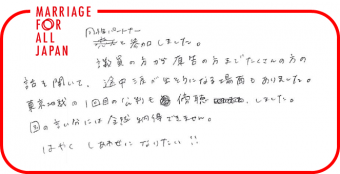 MARRIAGE
FOR
ALL
JAPAN
同性パートナー
と参加しました。
議員の方から原告の方までたくさんの方の
話を聞いて、途中 涙が出そうになる場面もありました。
東京地裁の1回目の公判も 傍聴 しました。
国の言い分には全然納得できません。
はやく しあわせに なりたい!!